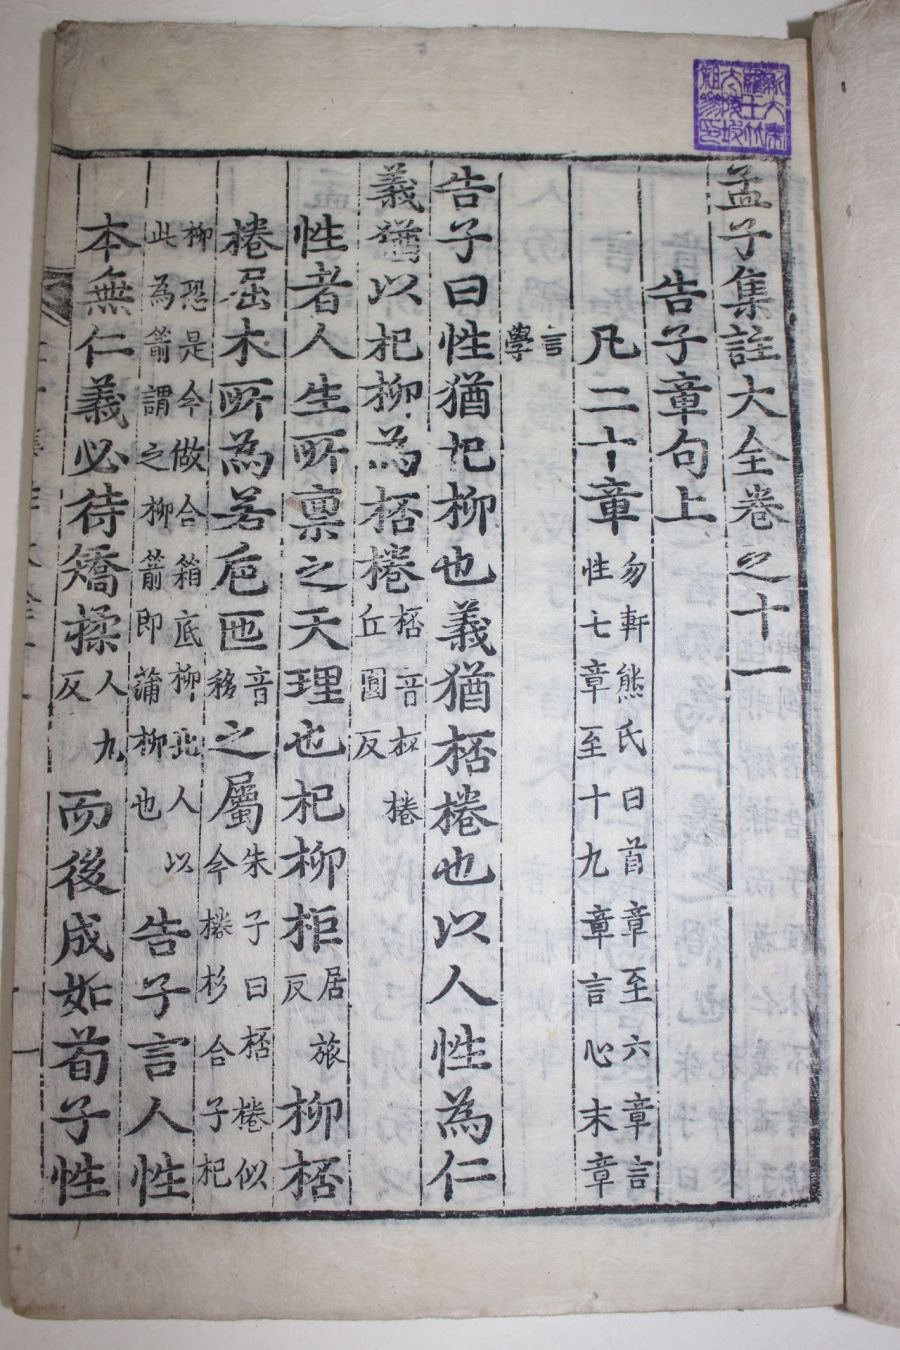 孟子集註大全卷之十一
告子章句上
凡二十章 勿軒熊氏曰首章至六章言性七章至十九章言心末章
言學
告子曰性猶杞柳也義猶桮棬也以人性為仁
義猶以杞柳為桮棬 桮音杯棬丘圓反
性者人生所稟之天理也杞柳柜 居旅反 柳桮
棬屈木所為若巵匜 音移 之屬 朱子曰桮棬似今棬杉合子杞
柳恐是今做合箱底柳北人以此為箭謂之柳箭即蒲柳也 告子言人性
本無仁義必待矯揉 人九反 而後成如荀子性